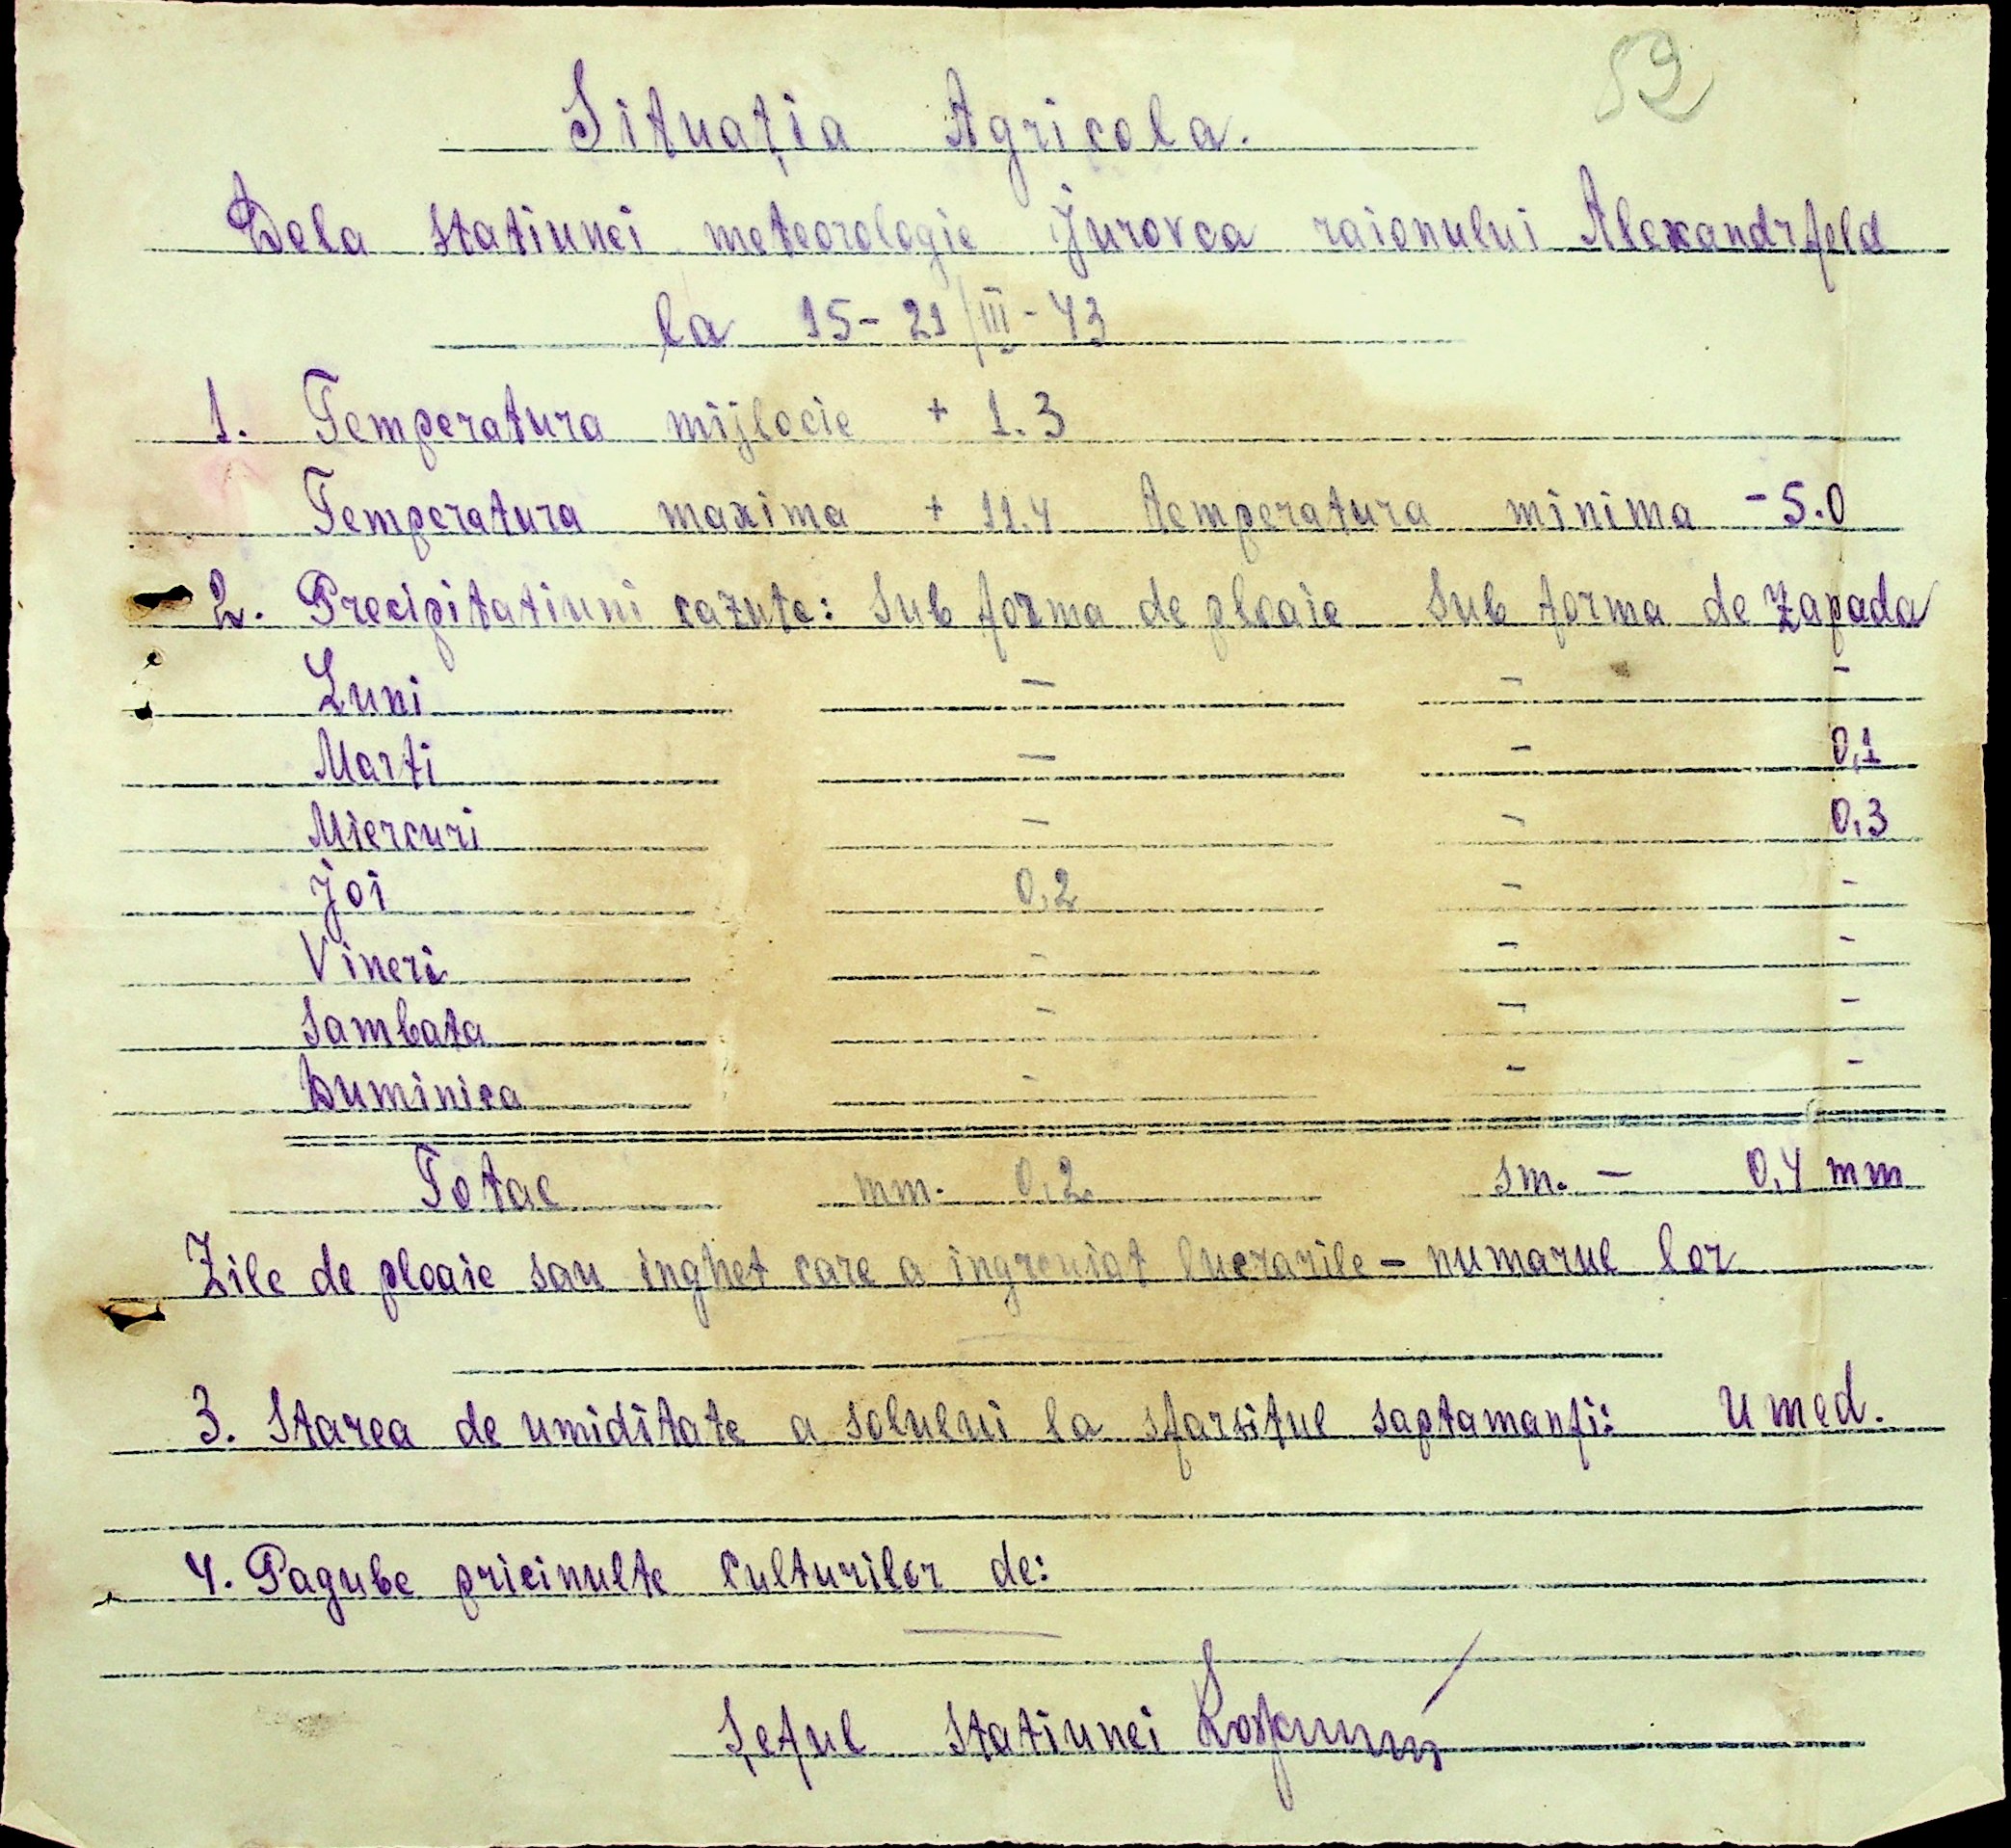 52
Situaţia Agricola.
Dela statiunei meteorologie Jurovca raionului Alexandrfeld
la 15-21/III-43
1. Temperatura mijlocie + 1.3
Temperatura maxima + 11.4 temperatura minima -5.0
2. Precipitatiuni cazute: Sub forma de ploaie Sub forma de zapada
Luni - - -
Marti - - 0,1
Miercuri - - 0,3
Joi 0,2 - -
Vineri - - -
Sambata - - -
Duminica - - -
Total mm. 0,2 sm. - 0,4 mm
Zile de ploaie sau inghet care a ingreuiat lucrarile - numarul lor
—
3. Starea de umiditate a solului la sfarsitul saptamanii: Umed.
4. Pagube pricinulte Culturilor de:
—
Şeful Statiunei